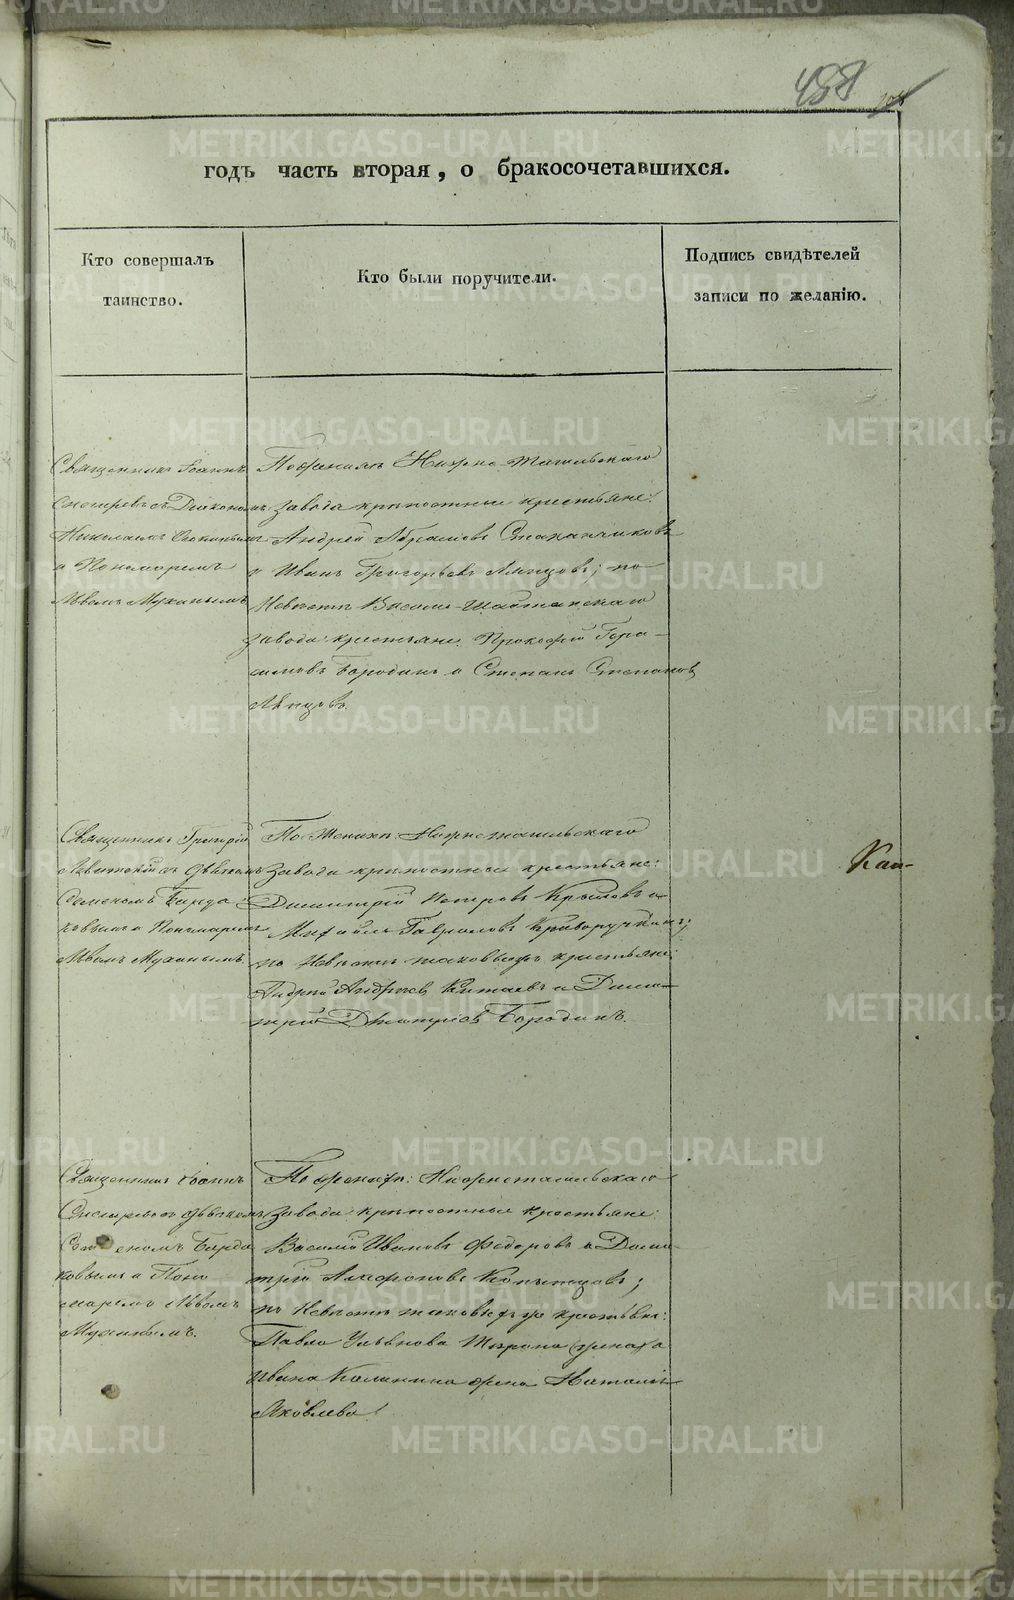 488
годъ часть вторая, о бракосочетавшихся.
Кто совершалъ
таинство.
Кто были поручители.
Подпись свидѣтелей
записи по желанію.
Священникъ Іоаннъ
съ Діакономъ
Николаемъ
и Пономаремъ
Львомъ Мухинымъ
По женихѣ Нижне-Тагильскаго
завода крѣпостные крестьяне:
Андрей Абрамовъ Стаканчиковъ
и Иванъ Григорьевъ Ляпцовъ; по
Невѣстѣ Висимо-Шайтанскаго
завода крестьяне: Прокофій Гера-
симовъ Бородинъ и Степанъ Степановъ
Ляпцовъ.
Священникъ Григорій
Левитскій съ дьячкомъ
Семеномъ Бирдю-
ковымъ и Пономаремъ
Львомъ Мухинымъ
По Женихѣ: Нижнетагильскаго
Завода крѣпостные крестьяне:
Димитрій Петровъ Крыловъ и
Михаилъ Гавриловъ Криворучкинъ;
по Невѣстѣ таковыежъ крестьяне:
Андрей Андреевъ Китаевъ и Дими-
трій Дмитріевъ Бородинъ.
Кап-
Священникъ Іоаннъ
съ дьячкомъ
Семеномъ Бирдю
ковымъ и Поно
маремъ Львомъ
Мухинымъ.
По женихѣ: Нижнетагильскаго
Завода крѣпостные крестьяне:
Василій Ивановъ Федоровъ и Дими-
трій Копытовъ;
по Невѣстѣ таковыежъ крестьяне:
Павла Ульянова жена и
Ивана Калинина жена Наталія
Яковлева.
METRIKI.GASO-URAL.RU